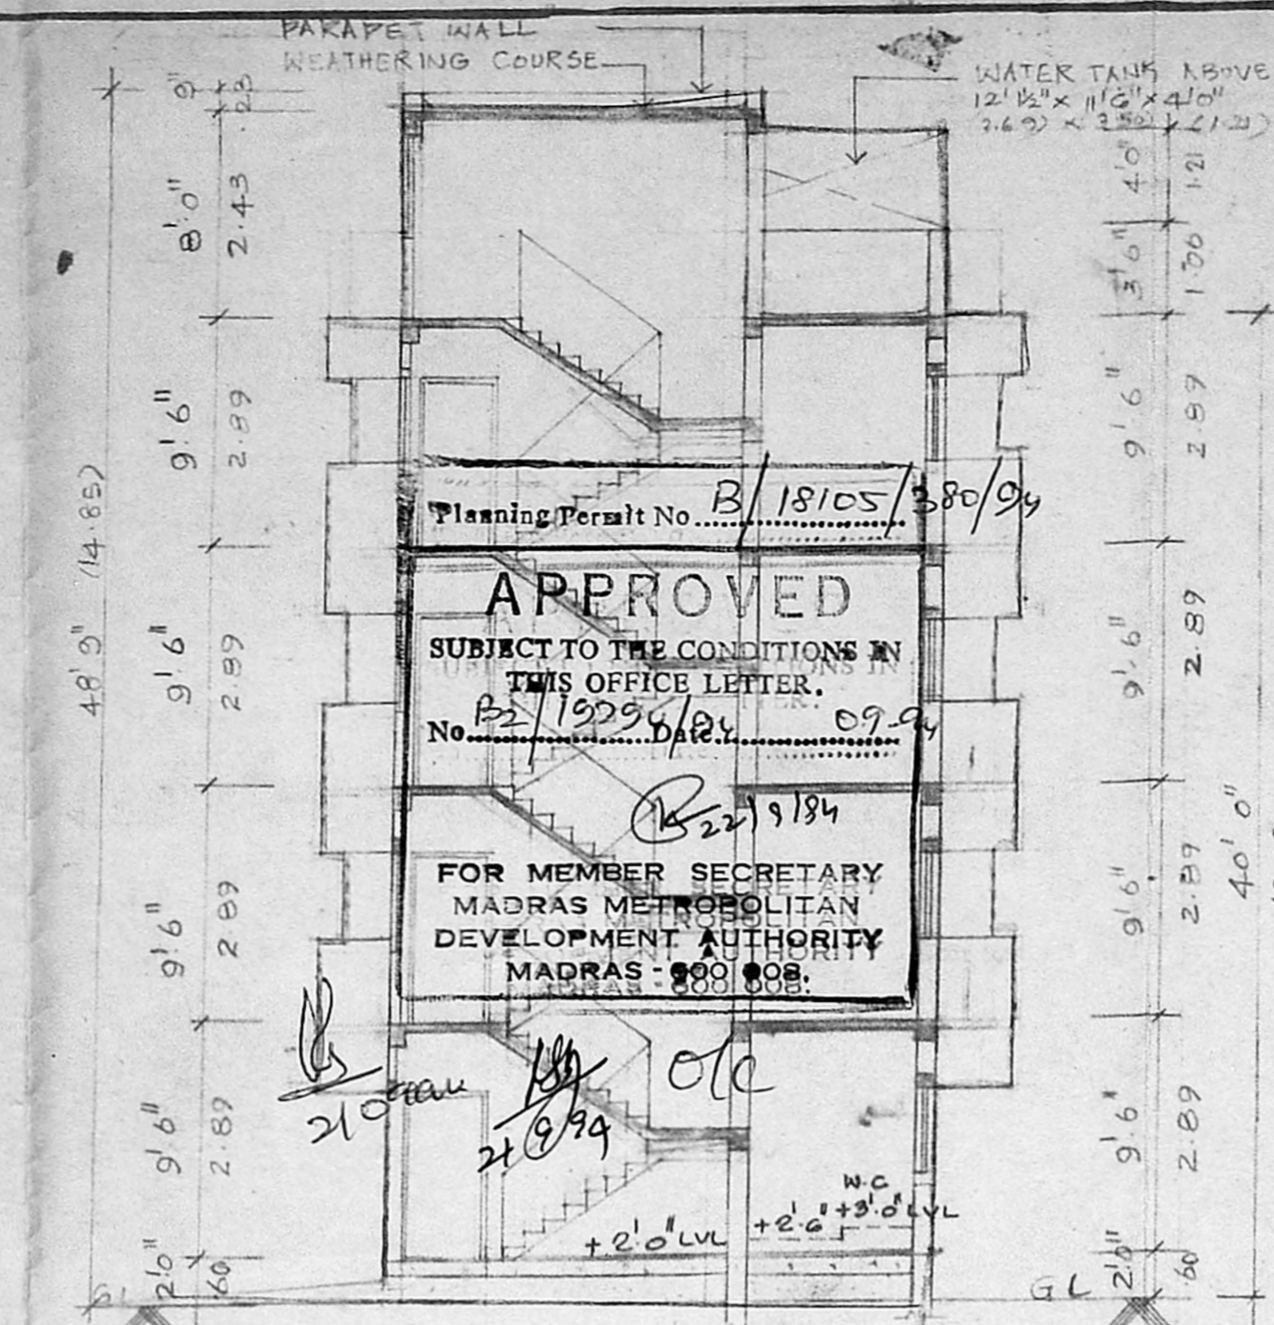 PARAPET WALL
WEATHERING COURSE
WATER TANK ABOVE
12'1½" x 11'6" x 4'0"
9"
23
8'0"
2.43
9'6"
2.89
9'6"
2.89
9'6"
2.89
9'6"
2.89
2'0"
60
48'9" (14.85)
4'0"
1.21
3'6"
1.06
9'6"
2.89
9'6"
2.89
9'6"
2.89
9'6"
2.89
2'0"
60
40'0"
Planning Permit No B/18105/380/94
APPROVED
SUBJECT TO THE CONDITIONS IN
THIS OFFICE LETTER.
No B2/ Date 09-94
22/9/94
FOR MEMBER SECRETARY
MADRAS METROPOLITAN
DEVELOPMENT AUTHORITY
MADRAS - 600 008.
21/9/94
O/C
W.C
+2'6" +3'0" LVL
+2'0" LVL
GL
GL